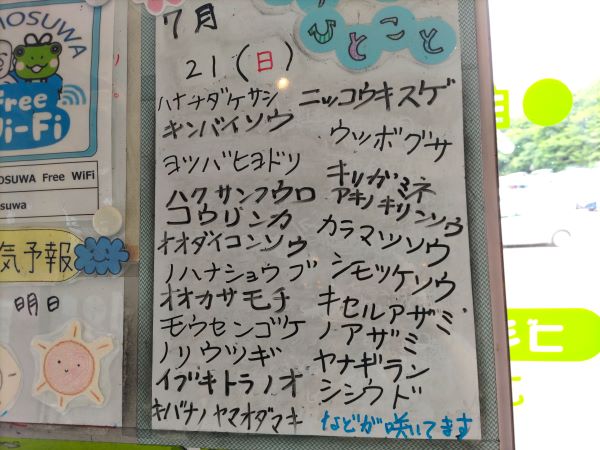 OSUWA
Free
Wi-Fi
OSUWA Free WiFi
suwa
気予報
明日
ひとこと
7月
21(日)
ハナチダケサシ
キンバイソウ
ヨツバヒヨドリ
ハクサンフウロ
コウリンカ
オオダイコンソウ
ノハナショウブ
オオカサモチ
モウセンゴケ
ノリウツギ
イブキトラノオ
キバナノヤマオダマキ
ニッコウキスゲ
ウツボグサ
キリガミネ
アキノキリンソウ
カラマツソウ
シモツケソウ
キセルアザミ
ノアザミ
ヤナギラン
シシウド
などが咲いてます